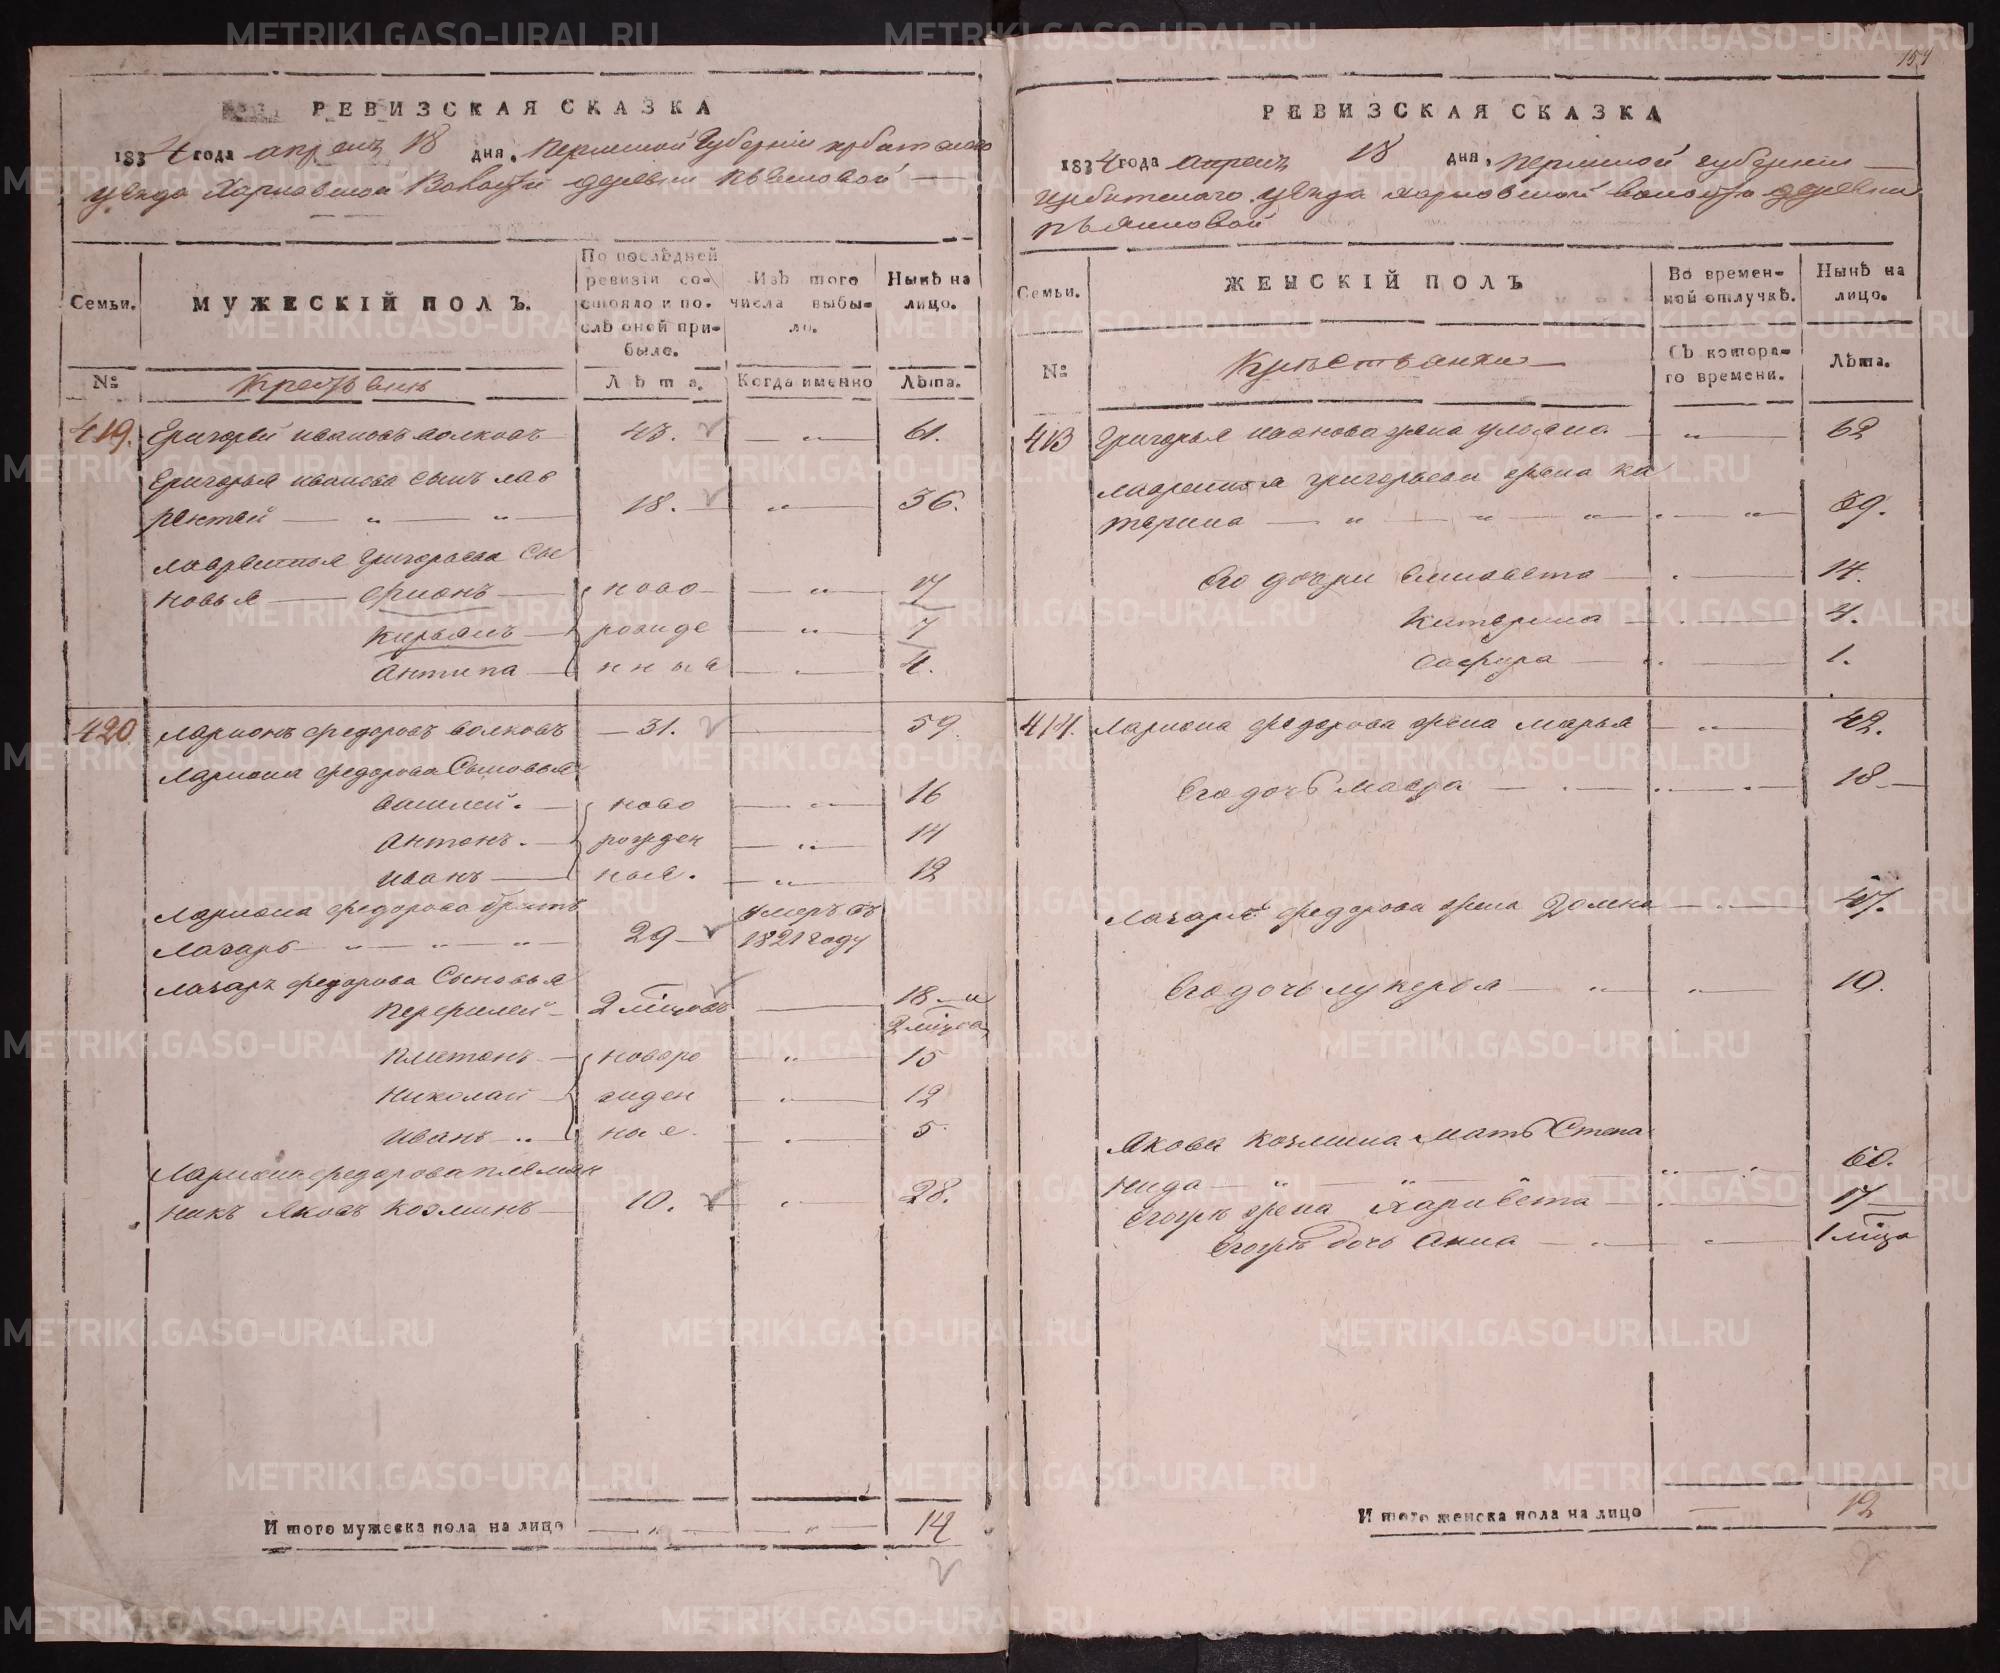 РЕВИЗСКАЯ СКАЗКА
1834 года апреля 18 дня, Пермской Губернии Ирбитскаго
уезда Харловской Волости деревни Пьянковой
Семьи.
МУЖЕСКІЙ ПОЛЪ.
По послѣдней ревизіи состояло и послѣ оной прибыло.
Изъ того числа выбыло.
Нынѣ на лицо.
№
Крестьяне
Лѣта.
Когда именно
Лѣта.
419. Григорей Ивановъ Волковъ 43. — „ — 61.
Григорья Иванова сынъ Лав
рентей — „ — „ — 18. — „ — 36.
Лаврентья Григорьева сы
новья — Фионъ — ново — „ — 17
Кирьянъ — рожде — „ — 7
Антипа — нныя — „ — 4.
420. Ларионъ Федоровъ Волковъ — 31. — 59.
Лариона Федорова сыновья
Василей. — ново — „ — 16
Антонъ. — рожден — „ — 14
Иванъ — ныя. — „ — 12
Лариона Федорова братъ
Лазарь — „ — „ — „ — 29 — умеръ въ 1821 году
Лазаря Федорова сыновья
Перфилей — 2 мѣсцовъ — 18 — и 2 мѣсца
Платонъ — новоро — „ — 15
Николай — жден — „ — 12
Иванъ — „ ныя. — „ — 5
Лариона Федорова племян
никъ Яковъ Козминъ — 10. — „ — 28.
И того мужеска пола на лицо — „ — — „ — 14
154
РЕВИЗСКАЯ СКАЗКА
1834 года апреля 18 дня, Пермской губернии
Ирбитскаго уезда Харловской волости деревни
Пьянковой
Семьи.
ЖЕНСКІЙ ПОЛЪ
Во временной отлучкѣ.
Нынѣ на лицо.
№
Крестьянки
Съ котораго времени.
Лѣта.
413 Григорья Иванова жена Ульяна — „ — 62
Лаврентья Григорьева жена Ка
терина — „ — „ — „ — „ — „ — 39.
Его дочери Елисавета — „ — 14.
Катерина — „ — 4.
Сафира — „ — 1.
414. Лариона Федорова жена Марья — „ — 42.
Его дочь Мавра — „ — „ — „ — 18 —
Лазаря Федорова жена Домна — „ — 47.
Его дочь Лукерья — „ — „ — 10.
Якова Козмина мать Степа
нида — „ — „ — „ — „ 60.
Его же жена — „ — 17 —
Его же дочь Анна — „ — „ — 1 мѣсца
И того женска пола на лицо — 12
METRIKI.GASO-URAL.RU